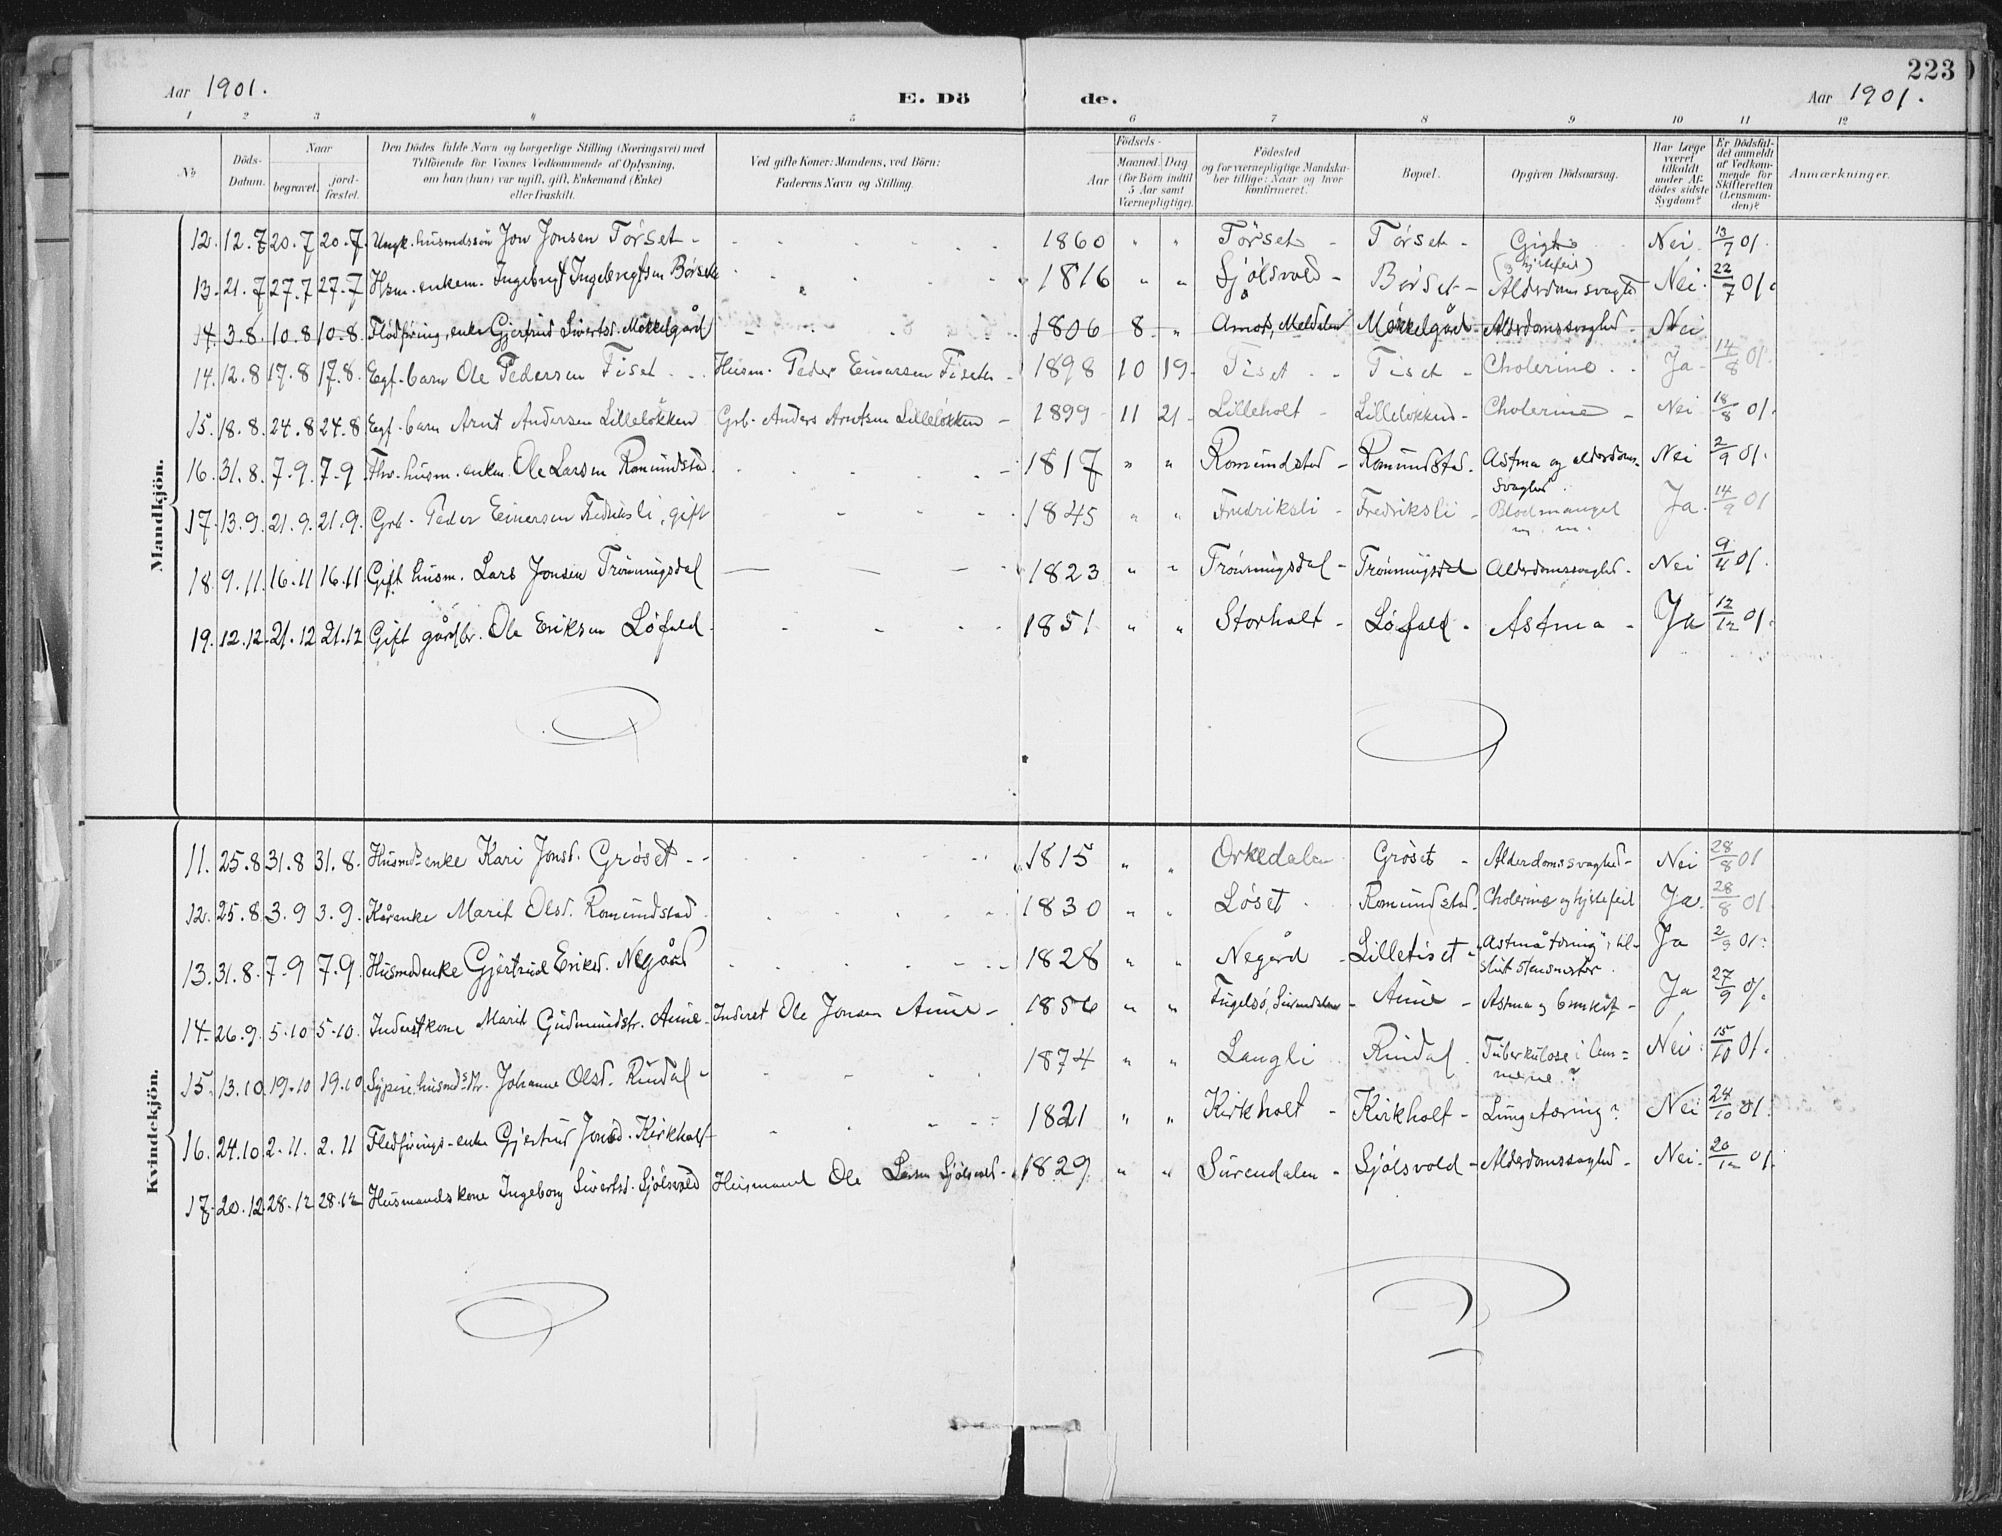 223
Aar 1901.
E. Döde.
Aar 1901.
1 2 3 4 5 6 7 8 9 10 11 12
No
Döds-Datum.
Naar begravet. jord-fæstet.
Den Dödes fulde Navn og borgerlige Stilling (Næringsvei) med Tilföiende for Voxnes Vedkommende af Oplysning, om han (hun) var ugift, gift, Enkemand (Enke) eller fraskilt.
Ved gifte Koner: Mandens, ved Börn: Faderens Navn og Stilling.
Födsels-
Aar
Maaned. Dag (for Börn indtil 5 Aar samt Værnepligtige).
Födested og for værnepligtige Mandskaber tillige: Naar og hvor konfirmeret.
Bopæl.
Opgiven Dödsaarsag.
Har Læge været tilkaldt under Afdödes sidste Sygdom?
Er Dödsfaldet anmeldt af Vedkommende for Skifteretten (Lensmanden)?
Anmærkninger.
Mandkjön.
12. 12.7 20.7 20.7 Ungk. husmdssön Jon Jonsen Törset - 1860 " " Törset - Törset - Gigt (og hjertefeil) Nei 13/7 01.
13. 21.7 27.7 27.7 Hsm. enkem. Ingebrigt Ingebrigtsen Börset 1816 " " Sjölsvold - Börset - Alderdomssvaghed Nei. 22/7 01.
14. 3.8. 10.8 10.8 Flodföring, enke Gjertrud Sivertsd. Mökkelgård 1806 8 " Åmot, Meldalen Mökkelgård Alderdomssvaghed Nei
14. 12.8 17.8 17.8. Egf. barn Ole Pedersen Tiset Husm. Peder Einarsen Tiset 1898 10 19 Tiset - Tiset - Cholerine Ja 14/8 01.
15. 18.8. 24.8 24.8 Egf. barn Arnt Andersen Lillelökken Grb. Anders Arntsen Lillelökken - 1899 11 21 Lilleholt - Lillelökken - Cholerine - Nei 18/8 01.
16. 31.8. 7.9. 7.9. Fhv. husm. enkm. Ole Larsen Romundstad 1817 " " Romundstad - Romundstad. Astma og alderdomssvaghed. Nei 2/9 01.
17. 13.9. 21.9. 21.9. Grb. Peder Einersen Fredriksli, gift 1845 " " Fredriksli - Fredriksli - Blodmangel m. m. Ja 14/9 01
18. 9.11. 16.11 16.11 Gift husm. Lars Jonsen Trönningsdal 1823 " " Trönningsdal - Trönningsdal Alderdomssvaghed. Nei 9/11 01.
19. 12.12. 21.12 21.12 Gift gårdbr. Ole Eriksen Löfald 1851 " " Storholt - Löfald - Astma - Ja 12/12 01.
Kvindekjön.
11. 25.8 31.8 31.8. Husmdsenke Kari Jonsd. Gröset - 1815 " " Orkedalen Gröset - Alderdomssvaghed - Nei 28/8 01
12. 25.8. 3.9 3.9. Kårenke Marit Olsd. Romundstad 1830 " " Löset - Romundstad. Cholerine og hjertefeil Ja. 28/8 01
13. 31.8. 7.9 7.9. Husmdsenke Gjertrud Eriksd. Negård 1828 " " Negård - Lilletiset - "Astmatæring", tilslut Ja 2/9 01.
14. 26.9. 5.10 5.10. Inderstkone Marit Gudmundsdtr. Aune - Inderst Ole Jonsen Aune - 1856 " " Fugelsö, Surendalen - Aune - Astma og Ja 27/9 01.
15. 13.10 19.10 19.10 Sypige husmdsdtr. Johanne Olsd. Rindal - 1874 " " Langli Rindal. Tuberkulose i Nei. 15/10 01.
16. 24.10 2.11. 2.11 Flodförings-enke Gjertrud Jonsd. Kirkholt 1821 " " Kirkholt - Kirkholt - Lungetæring? Nei 24/10 01.
17. 20.12. 28.12 28.12 Husmandskone Ingeborg Sivertsd. Sjölsvold Husmand Ole Larsen Sjölsvold - 1829 " " Surendalen - Sjölsvold - Alderdomssvaghed - Nei. 20/12 01.